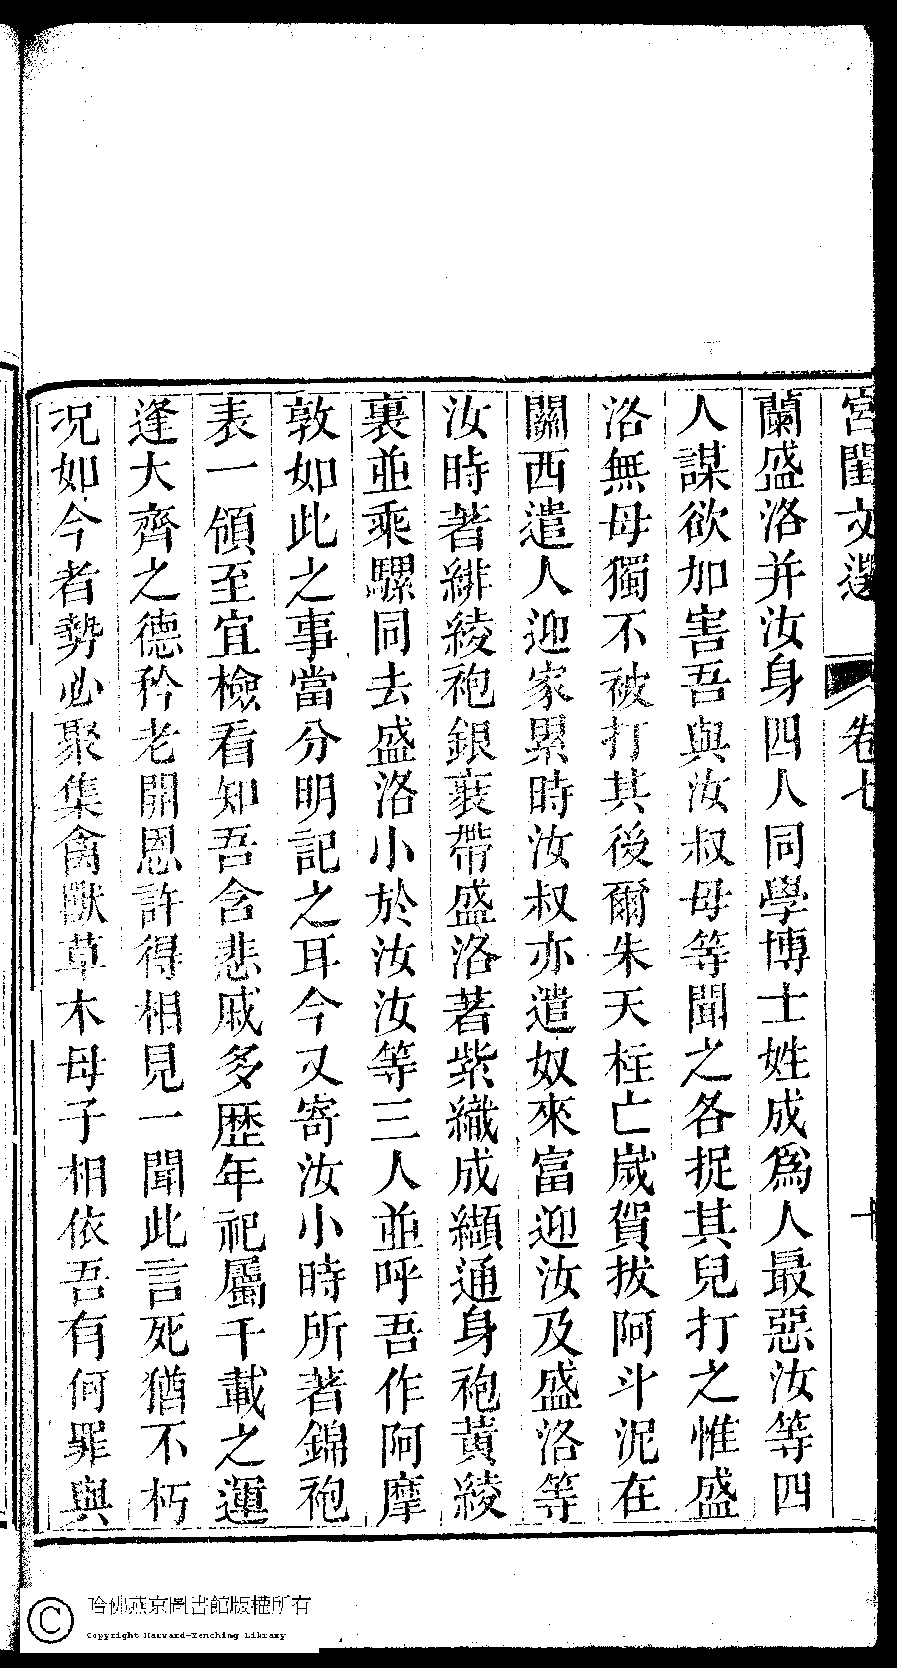 宮閨文選 卷七 十
蘭盛洛并汝身四人同學博士姓成爲人最惡汝等四
人謀欲加害吾與汝叔母等聞之各捉其兒打之惟盛
洛無母獨不被打其後爾朱天柱亡歲賀拔阿斗泥在
關西遣人迎家累時汝叔亦遣奴來富迎汝及盛洛等
汝時著緋綾袍銀裝帶盛洛著紫織成纈通身袍黃綾
裏並乘騾同去盛洛小於汝汝等三人並呼吾作阿摩
敦如此之事當分明記之耳今又寄汝小時所著錦袍
表一領至宜檢看知吾含悲戚多歴年祀屬千載之運
逢大齊之德矜老開恩許得相見一聞此言死猶不朽
况如今者勢必聚集禽獸草木母子相依吾有何罪與
哈佛燕京圖書館版權所有
Copyright Harvard-Yenching Library